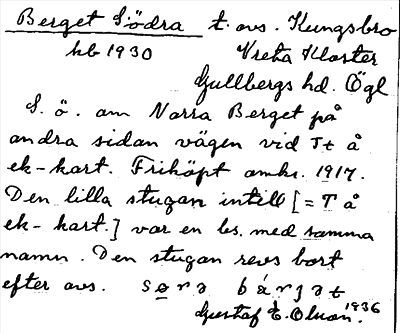 Berget Södra t. avs. Kungsbro
hb 1930 Vreta Kloster
Gullbergs hd. Ögl
S. ö. om Norra Berget på
andra sidan vägen vid Tt å
ek-kart. Friköpt omkr. 1917.
Den lilla stugan intill [= T å
ek-kart.] var en bs. med samma
namn. Den stugan revs bort
efter avs.
Gustaf E. Olson. 1936